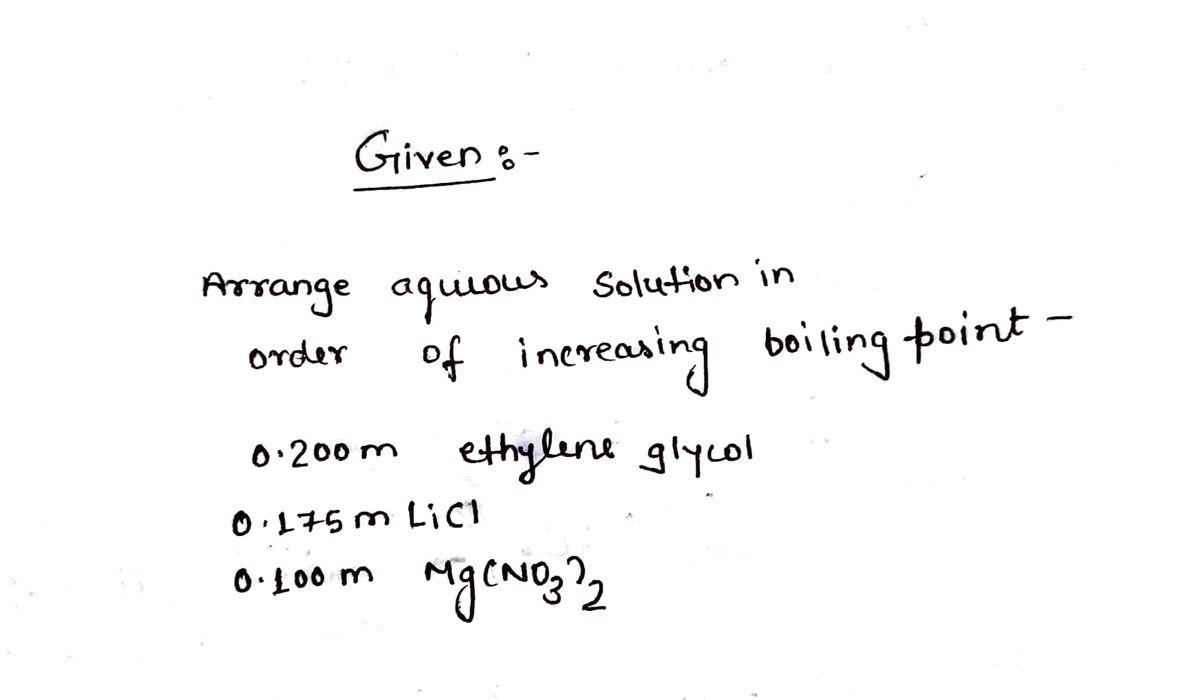 Given :-
Arrange aquous Solution in
order of increasing boiling point -
0.200 m ethylene glycol
0.175 m LiCl
0.100 m Mg(NO3)2